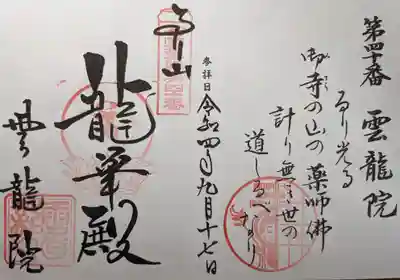 第四十番 雲龍院
るり光る
御寺の山の薬師佛
計り無き世の
道しるべなり
参拝日 令和四年九月十七日
泉山
龍華殿
雲龍院